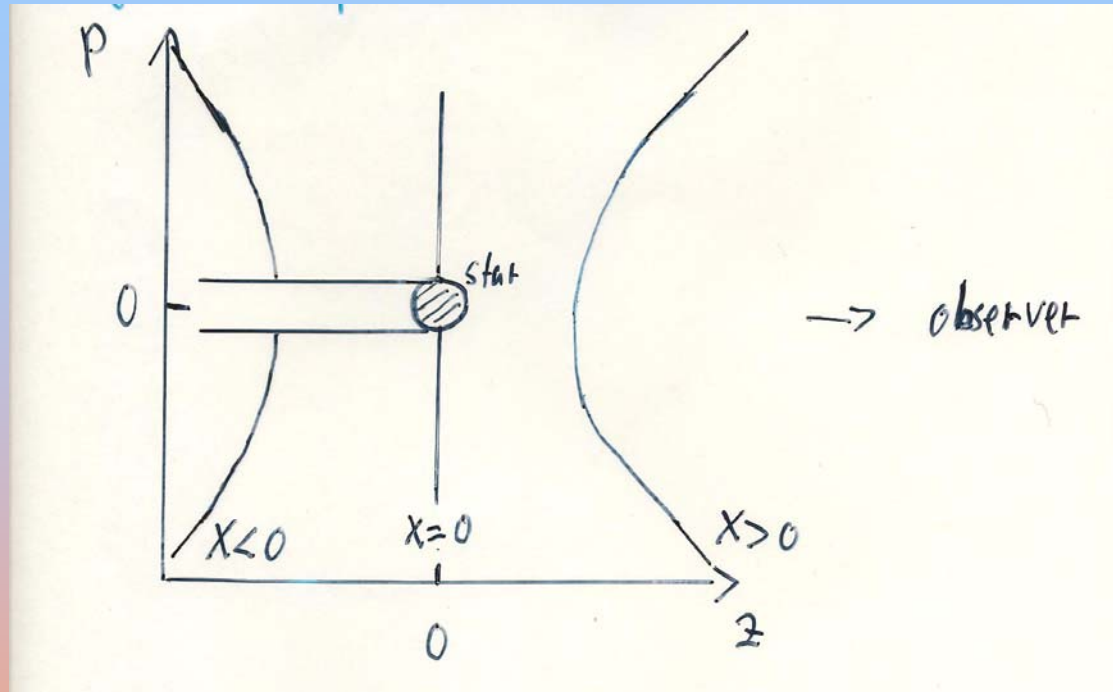 p
star
0
→ observer
x<0
x=0
x>0
0
z